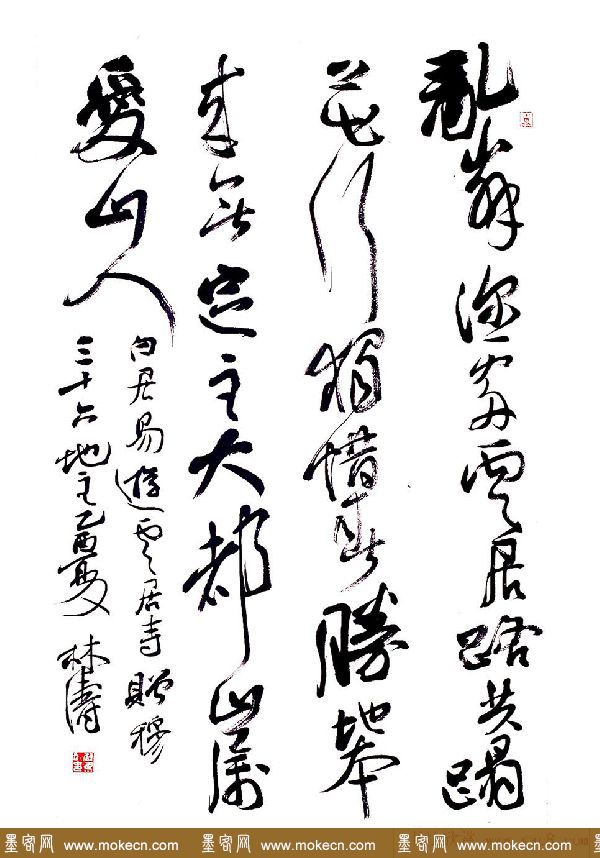 亂峯深處雲居路共蹋
花行獨惜春勝地本
来無定主大都山属
愛山人
白居易遊雲居寺贈穆
三十六地主乙酉夏林濤
墨客网 www.mokecn.com 墨客网 www.mokecn.com 墨客网 www.mokecn.com